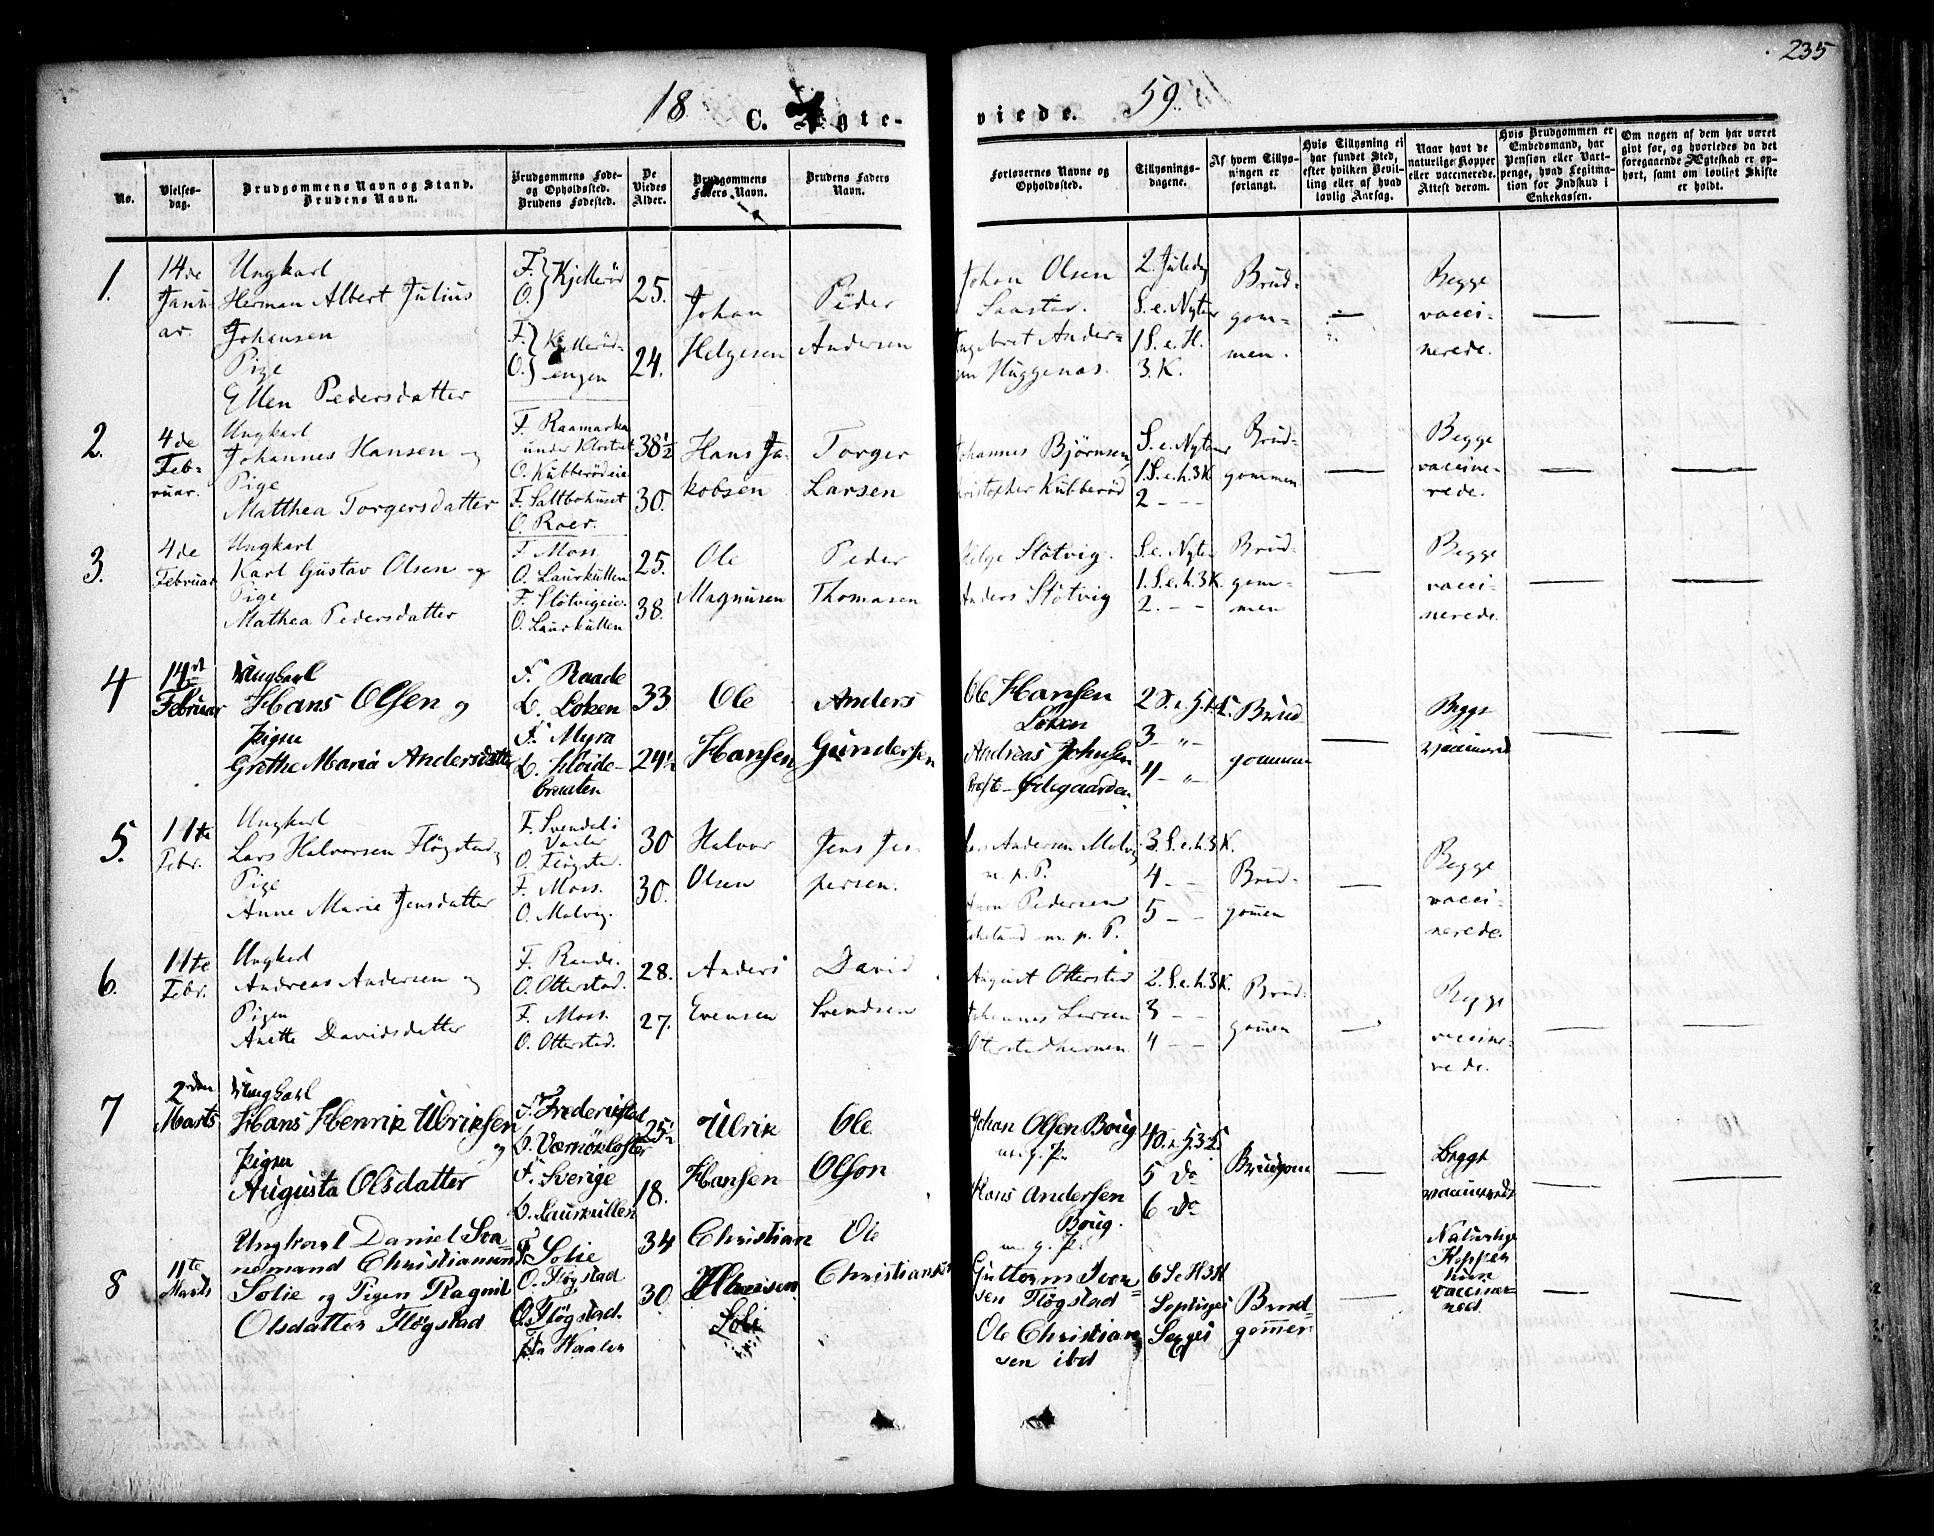 235
18 C. Ægte-
viede. 59.
No.
Vielses-
dag.
Brudgommens Navn og Stand.
Brudens Navn.
Brudgommens Føde-
og Opholdssted.
Brudens Fødested.
De
Viedes
Alder.
Brudgommens
Faders Navn.
Brudens Faders
Navn.
Forlovernes Navne og
Opholdssted.
Tillysnings-
dagene.
Af hvem Tillys-
ningen er
forlangt.
Hvis Tillysning ei
har fundet Sted,
efter hvilken Bevil-
ling eller af hvad
lovlig Aarsag.
Naar havt de
naturlige Kopper
eller vaccinerede.
Attest derom.
Hvis Brudgommen er
Embedsmand, har
Pension eller Vart-
penge, hvad Legitima-
tion for Indskud i
Enkekassen.
Om nogen af dem har været
givt før, og hvorledes da det
foregaaende Ægteskab er op-
hørt, samt om lovligt Skifte
er holdt.
1.
14de
Janu-
ar.
Ungkarl
Herman Albert Julius
Johansen
Pige
Ellen Pedersdatter
F.
O. Kjellerød
F. Kjellerød-
O. engen
25.
24.
Johan
Helgesen
Peder
Andersen
Johan Olsen
Saastad.
Ingebret Ander-
sen Huggenæs.
2. Juledag
S. e. Nytaar
1 S. e. H.
3. K.
Brud-
gom-
men.
Begge
vacci-
nerede.
2.
4de
Feb-
ruar.
Ungkarl
Johannes Hansen og
Pige
Matthea Torgersdatter
F. Raamarka
under Klostret
O. Kubberødeie
F. Saltbohuset
O. Roer.
38½
30.
Hans Ja-
kobsen
Torger
Larsen
Johannes Bjørnsen,
Kristopher Kubberød
S. e. Nytaar
1. S. e. h. 3 K
2 - - -
Brud-
gommen
Begge
vaccine-
rede.
3.
4de
Februar
Ungkarl
Karl Gustav Olsen og
Pige
Mathea Pedersdatter
F. Moss.
O. Laurkullen
F. Støtvigeie.
O. Laurkullen
25.
38.
Ole
Magnusen
Peder
Thomasen
Helge Støtvig.
Anders Støtvig
S. e. Nytaar
1. S. e. h. 3 K.
2. - -
Brud-
gom-
men
Begge
vacci-
nerede.
4
14de
Februar
Ungkarl
Hans Olsen og
Pigen
Grethe Maria Andersdatter
F. Raade
O. Løken
F. Myra
33
24½
Ole
Hansen
Anders
Gundersen
Ole Hansen
Løken
Andreas Johnsen
3 - " -
4 - " -
Brud
gommen
Begge
vaccinered
5.
11te
Febr.
Ungkarl
Lars Halvorsen Fløgstad og
Pige
Anne Marie Jensdatter
F. Svendal i
Vaaler
O. Fløgstad.
F. Moss.
O. Molvig.
30
30.
Halvor
Olsen
Jens Jes-
persen.
Andersen Molvig
m. p. P.
Pedersen
m. p. P.
3. S. e. h. 3 K.
4 - -
5 - -
Brud-
gommen
Begge
vacci-
nerede.
6.
11te
Febr.
Ungkarl
Andreas Andersen og
Pigen
Anette Davidsdatter
F. Raade.
O. Otterstad.
F. Moss.
O. Otterstad.
28.
27.
Anders
Evensen
David
Svendsen
August Otterstad
Johannes Larsen
Otterstadhavnen
2. S. e. h. 3 K.
3 - -
4 - -
Brud-
gommen
Begge
vaccine-
rede.
7
2den
Marts
Ungkarl
Hans Henrik Ulriksen
og
Pigen
Augusta Olsdatter
F. Frederikstad
O. Værnökloster
F. Sverige
O. Laurkullen
25½
18.
Ulrik
Hansen
Ole
Olson
Johan Olsen Boug
m. g. P.
Hans Andersen
Boug.
m. g. P.
5 do
6 do
Brudgom
Begge
vaccinerede
8
11te
Marts
Ungkarl Daniel Sva-
nemand Christiansen
Solie og Pigen Ragnil
Olsdatter Fløgstad
F. Solie
O. Fløgstad
O. Fløgstad.
Fra Waaler
34
30.
Christian
Solie
Ole
Christiansen
Guttorm Iven-
sen Fløgstad
Ole Christian
sen ibd
6 S e H 3 K
Septuges
Sexges
Brud-
gommen
Naturlige
Kopper
hun
vacciner-
ned.